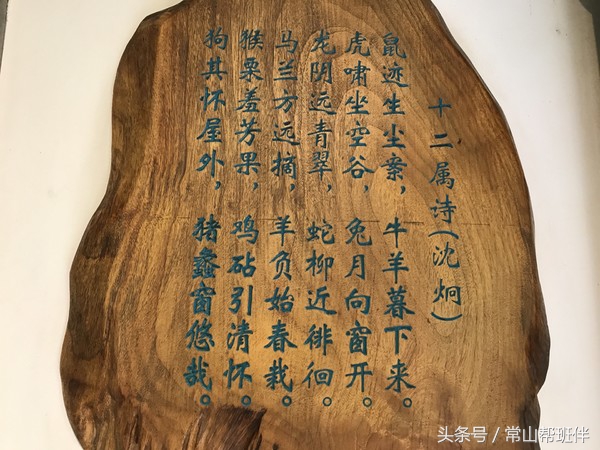 十二属诗(沈炯)
鼠迹生尘案，牛羊暮下来。
虎啸坐空谷，兔月向窗开。
龙阴远青翠，蛇柳近徘徊。
马兰方远摘，羊负始春栽。
猴栗羞芳果，鸡砧引清怀。
狗其怀屋外，猪蠡窗悠哉。
头条号／常山帮班伴